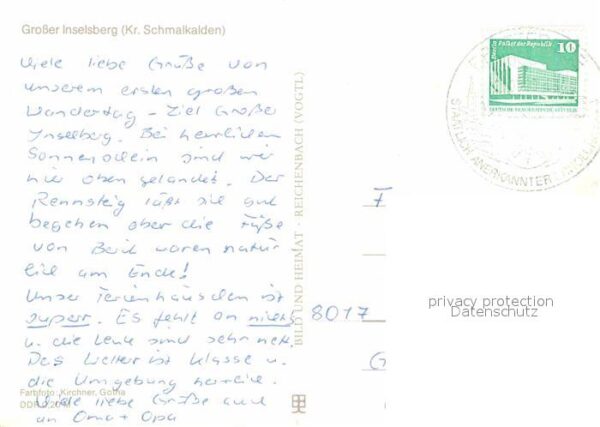 Großer Inselsberg (Kr. Schmalkalden)
Viele liebe Grüße von
unserem ersten großen
Wandertag - Ziel Großer
Inselberg. Bei herrlichem
Sonnenschein sind wir
hier oben gelandet. Der
Rennsteig läßt sich gut
begehen aber die Füße
von waren natür
lich am Ende!
Unser Ferienhäuschen ist
superr. Es fehlt an nichts
u. die Leute sind sehr nett.
Das Wetter ist klasse u.
die Umgebung herrlich.
Viele liebe Grüße auch
an Oma + Opa
Farbfoto: Kirchner, Gotha
DDR 0,20 M
BILD UND HEIMAT · REICHENBACH (VOGTL)
F
8017
G
Berlin Palast der Republik
10
DEUTSCHE DEMOKRATISCHE REPUBLIK
STAATLICH ANERKANNTER
privacy protection
Datenschutz